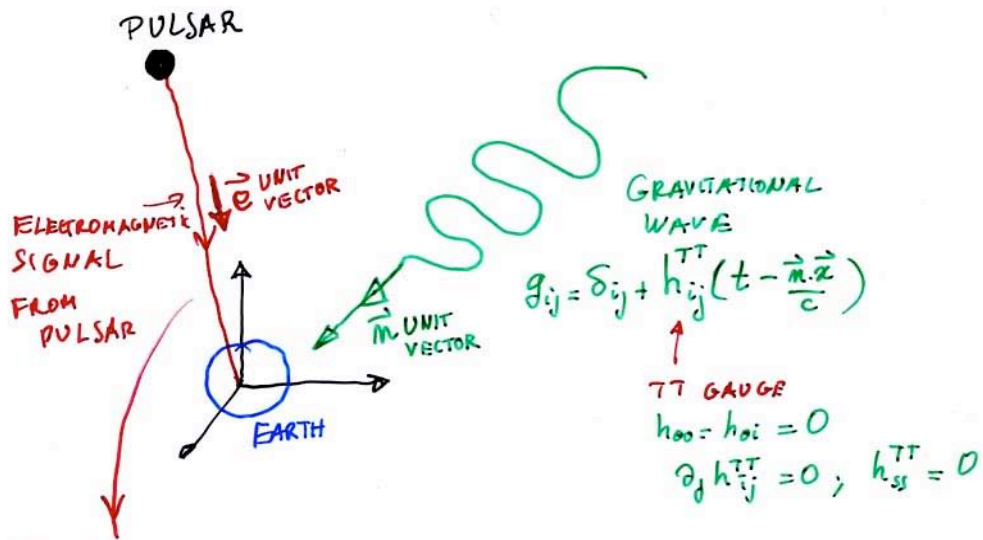 PULSAR
ELECTROMAGNETIC
SIGNAL
FROM
PULSAR
e⃗ UNIT
VECTOR
EARTH
n⃗ UNIT
VECTOR
GRAVITATIONAL
WAVE
g_ij = δ_ij + h_ij^TT (t - n⃗.x⃗/c)
TT GAUGE
h_oo = h_oi = 0
∂_j h_ij^TT = 0 ; h_ss^TT = 0